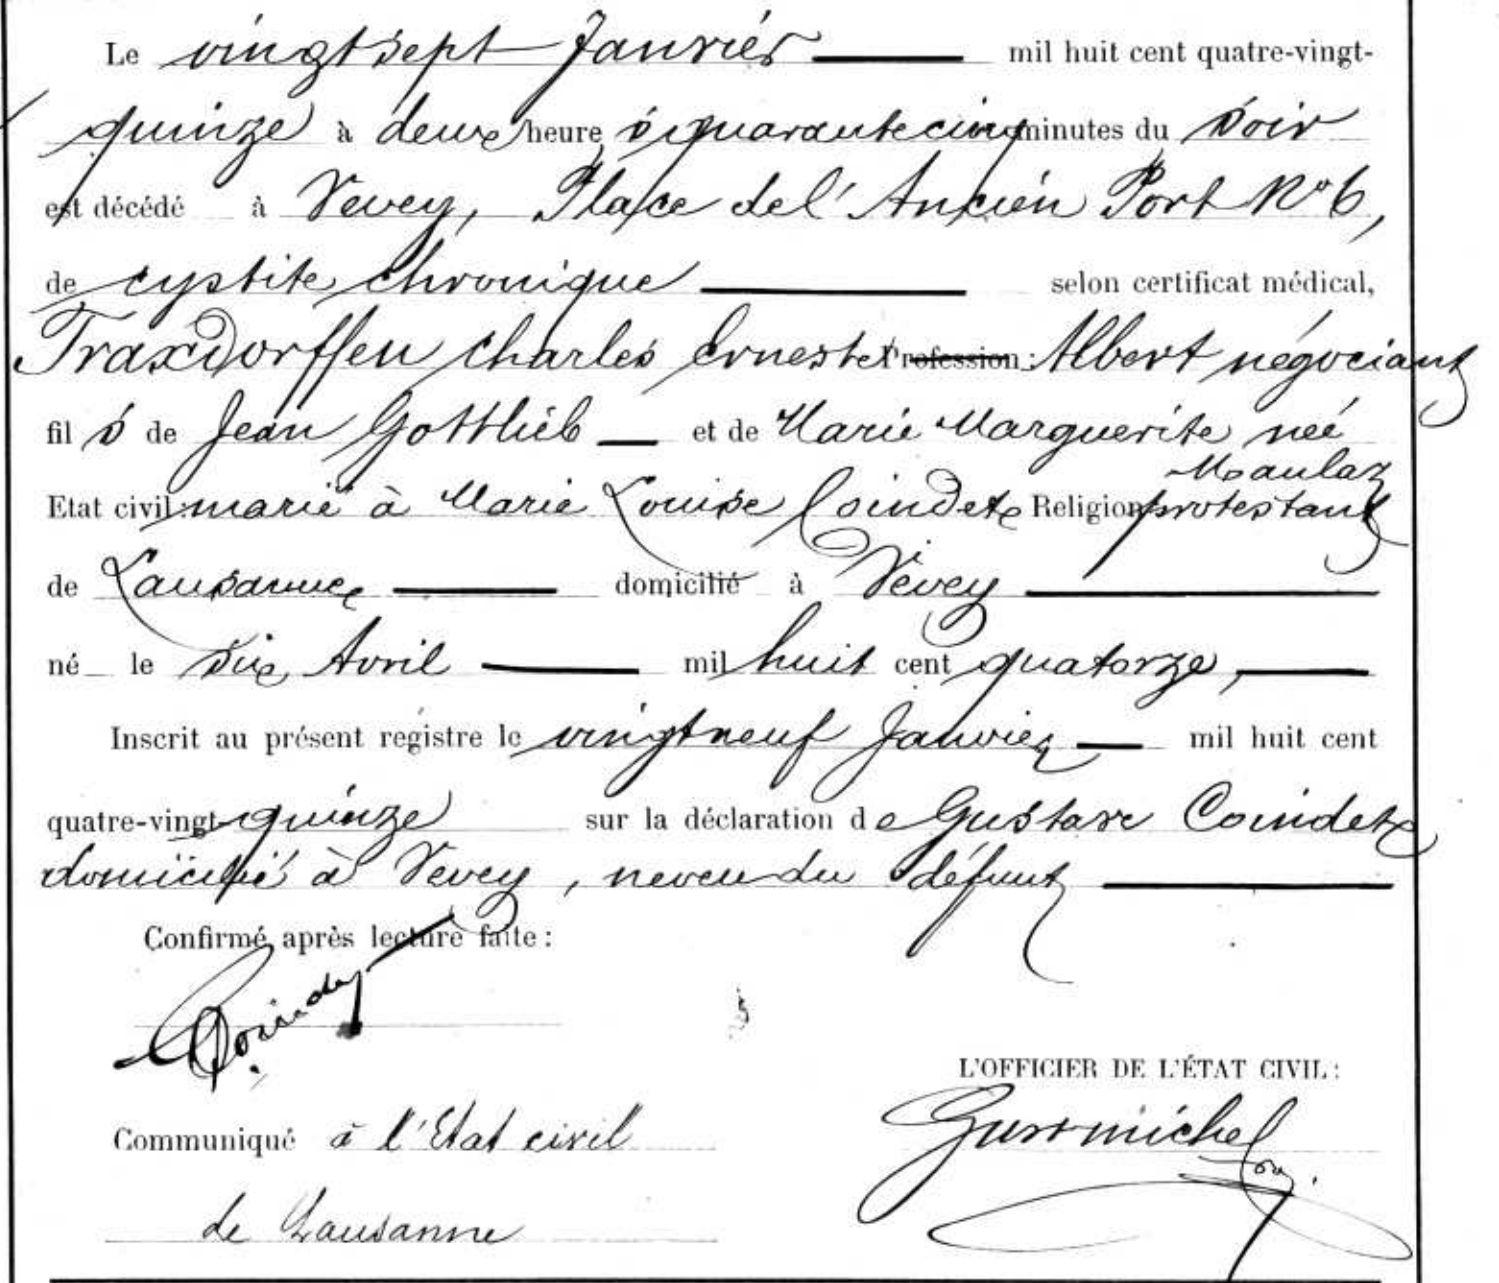 Le vingt sept Janvier mil huit cent quatre-vingt-
quinze à deux heure s quarante cinq minutes du soir
est décédé à Vevey, Place de l'Ancien Port No 6,
de cystite chronique selon certificat médical,
Traxdorffen Charles Ernest Profession: Albert négociant
fil s de Jean Gottlieb et de Marie Marguerite née
Maulaz
Etat civil: marié à Marie Louise Coindet Religion protestant
de Lausanne domicilié à Vevey
né le dix Avril mil huit cent quatorze,
Inscrit au présent registre le vingt neuf Janvier mil huit cent
quatre-vingt-quinze sur la déclaration de Gustave Coindet
domicilié à Vevey, neveu du défunt
Confirmé après lecture faite:
Coindet
L'OFFICIER DE L'ÉTAT CIVIL:
Communiqué à l'Etat civil
de Lausanne